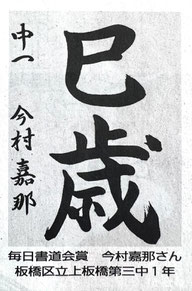 巳歳
中一 今村嘉那
毎日書道会賞 今村嘉那さん
板橋区立上板橋第三中1年